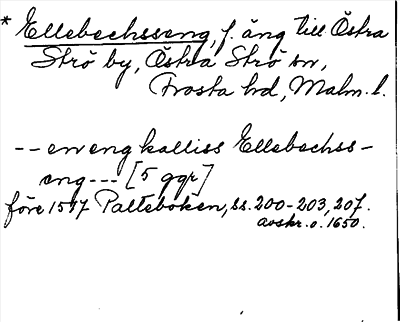 * Ellebechsseng, f. äng till Östra
Strö by, Östra Strö sn,
Frosta hd, Malm. l.
-- en eng kalliss Ellebechss-
eng --- [5 ggr]
före 1597 Palteboken, ss. 200-203, 207.
avskr. o. 1650.